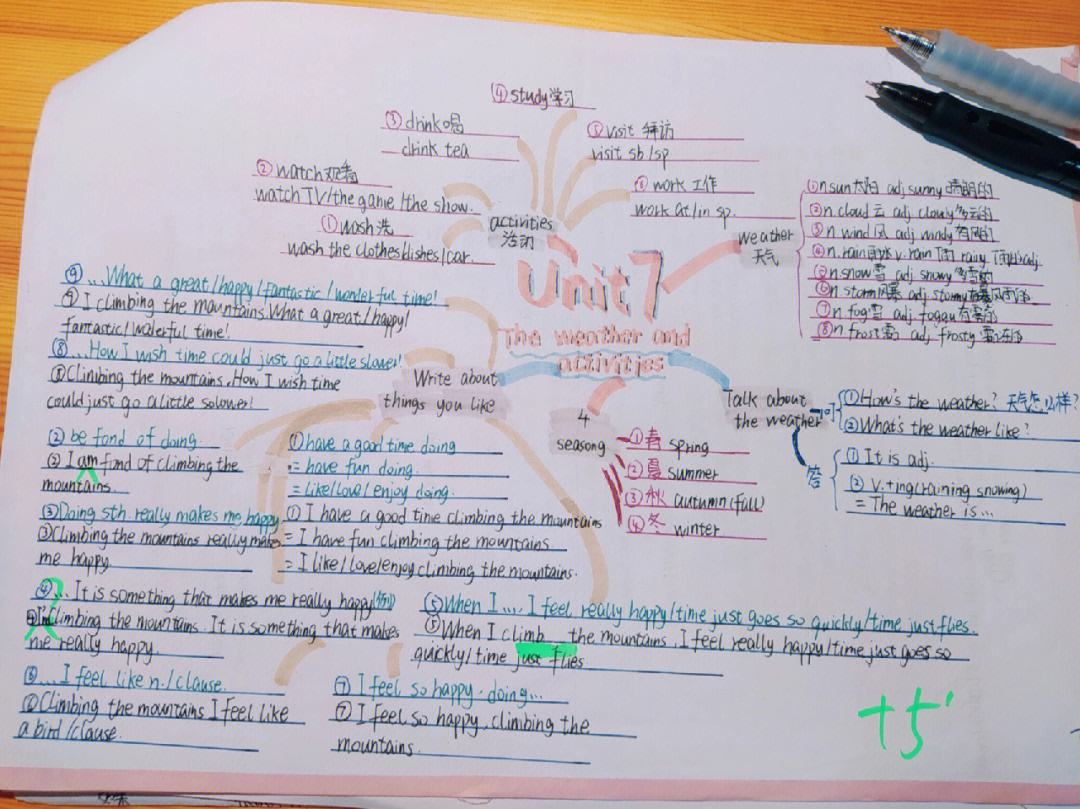 Unit 7
The weather and
activities
activities
活动
① wash 洗
wash the clothes/dishes/car.
② watch 观看
watch TV/the game/the show.
③ drink 喝
drink tea
④ study 学习
⑤ visit 拜访
visit sb/sp
work 工作
work at/in sp.
weather
天气
① n sun 太阳 adj sunny 晴朗的
② n. cloud 云 adj cloudy 多云的
③ n. wind 风 adj. windy 有风的
④ n. rain 雨水 v. rain 下雨 rainy adj.
⑤ n. snow 雪 adj snowy
⑥ n storm 风暴 adj stormy
⑦ n fog adj.
⑧ n frost 霜 adj frosty
Talk about
the weather
问
① How's the weather? 天气怎么样?
② What's the weather like?
答
① It is adj.
② v.+ing(raining snowing)
= The weather is...
4
seasong
① 春 spring
② 夏 summer
③ 秋 autumn (fall)
④ 冬 winter
Write about
things you like
⑨ ...What a great/happy/fantastic/wonderful time!
⑨ I climbing the mountains. What a great/happy/
fantastic/waderful time!
⑧ ...How I wish time could just go a little slower!
⑧ Climbing the mountains. How I wish time
could just go a little solower!
② be fond of doing.
② I am fond of climbing the
mountains.
③ Doing sth. really makes me happy.
③ Climbing the mountains really makes
me happy.
① have a good time doing
= have fun doing.
= like/love/enjoy doing.
① I have a good time climbing the mountains
= I have fun climbing the mountains
= I like/love/enjoy climbing the mountains.
④ ... It is something that makes me really happy
climbing the mountains. It is something that makes
me really happy.
⑤ When I .... I feel really happy/time just goes so quickly/time just flies.
⑤ When I climb the mountains, I feel really happy/time just goes so
quickly/time just flies
⑥ ... I feel like n./clause.
⑥ Climbing the mountains I feel like
a bird/clause.
⑦ I feel so happy. doing...
⑦ I feel so happy. climbing the
mountains.
+5'